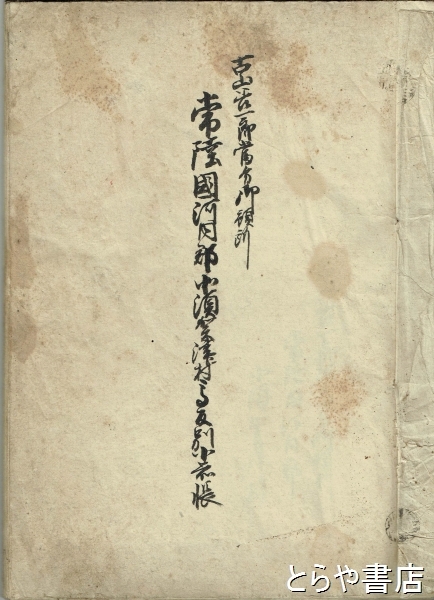 古山善一郎当分御預所
常陸國河内郡小須賀津村高反別小前帳
とらや書店